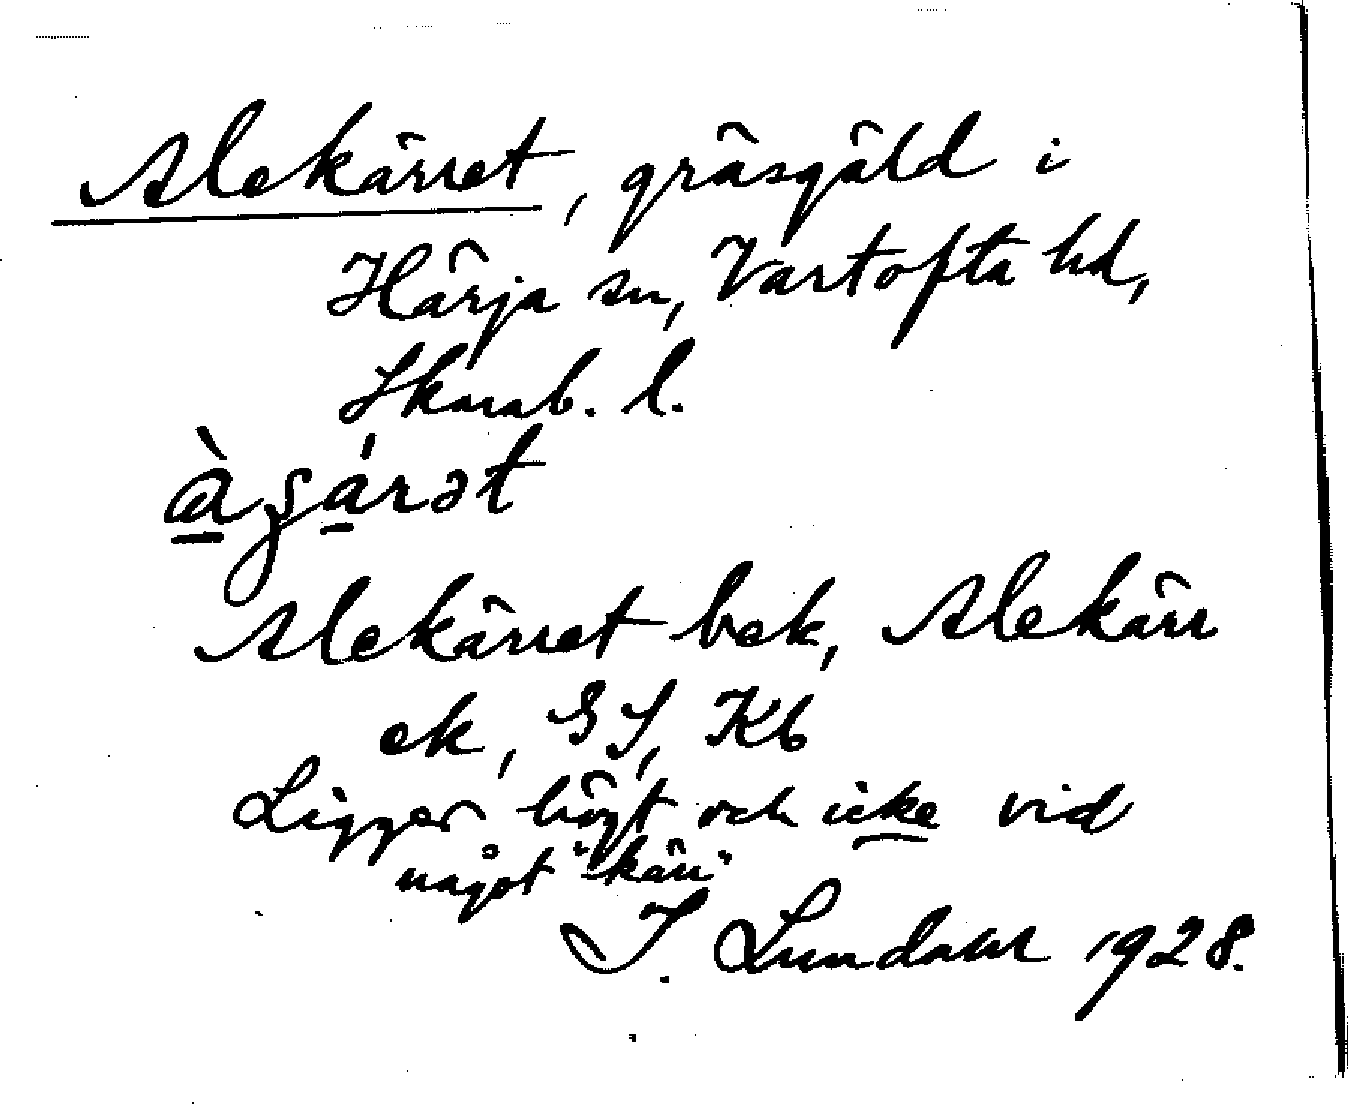 Alekärret, gräsgäld i
Härja sn, Vartofta hd,
Skarab. l.
Alekärret bek, Alekärr
ek, GS, Kb
Ligger högt och icke vid
något "kärr"
I. Lundahl 1928.